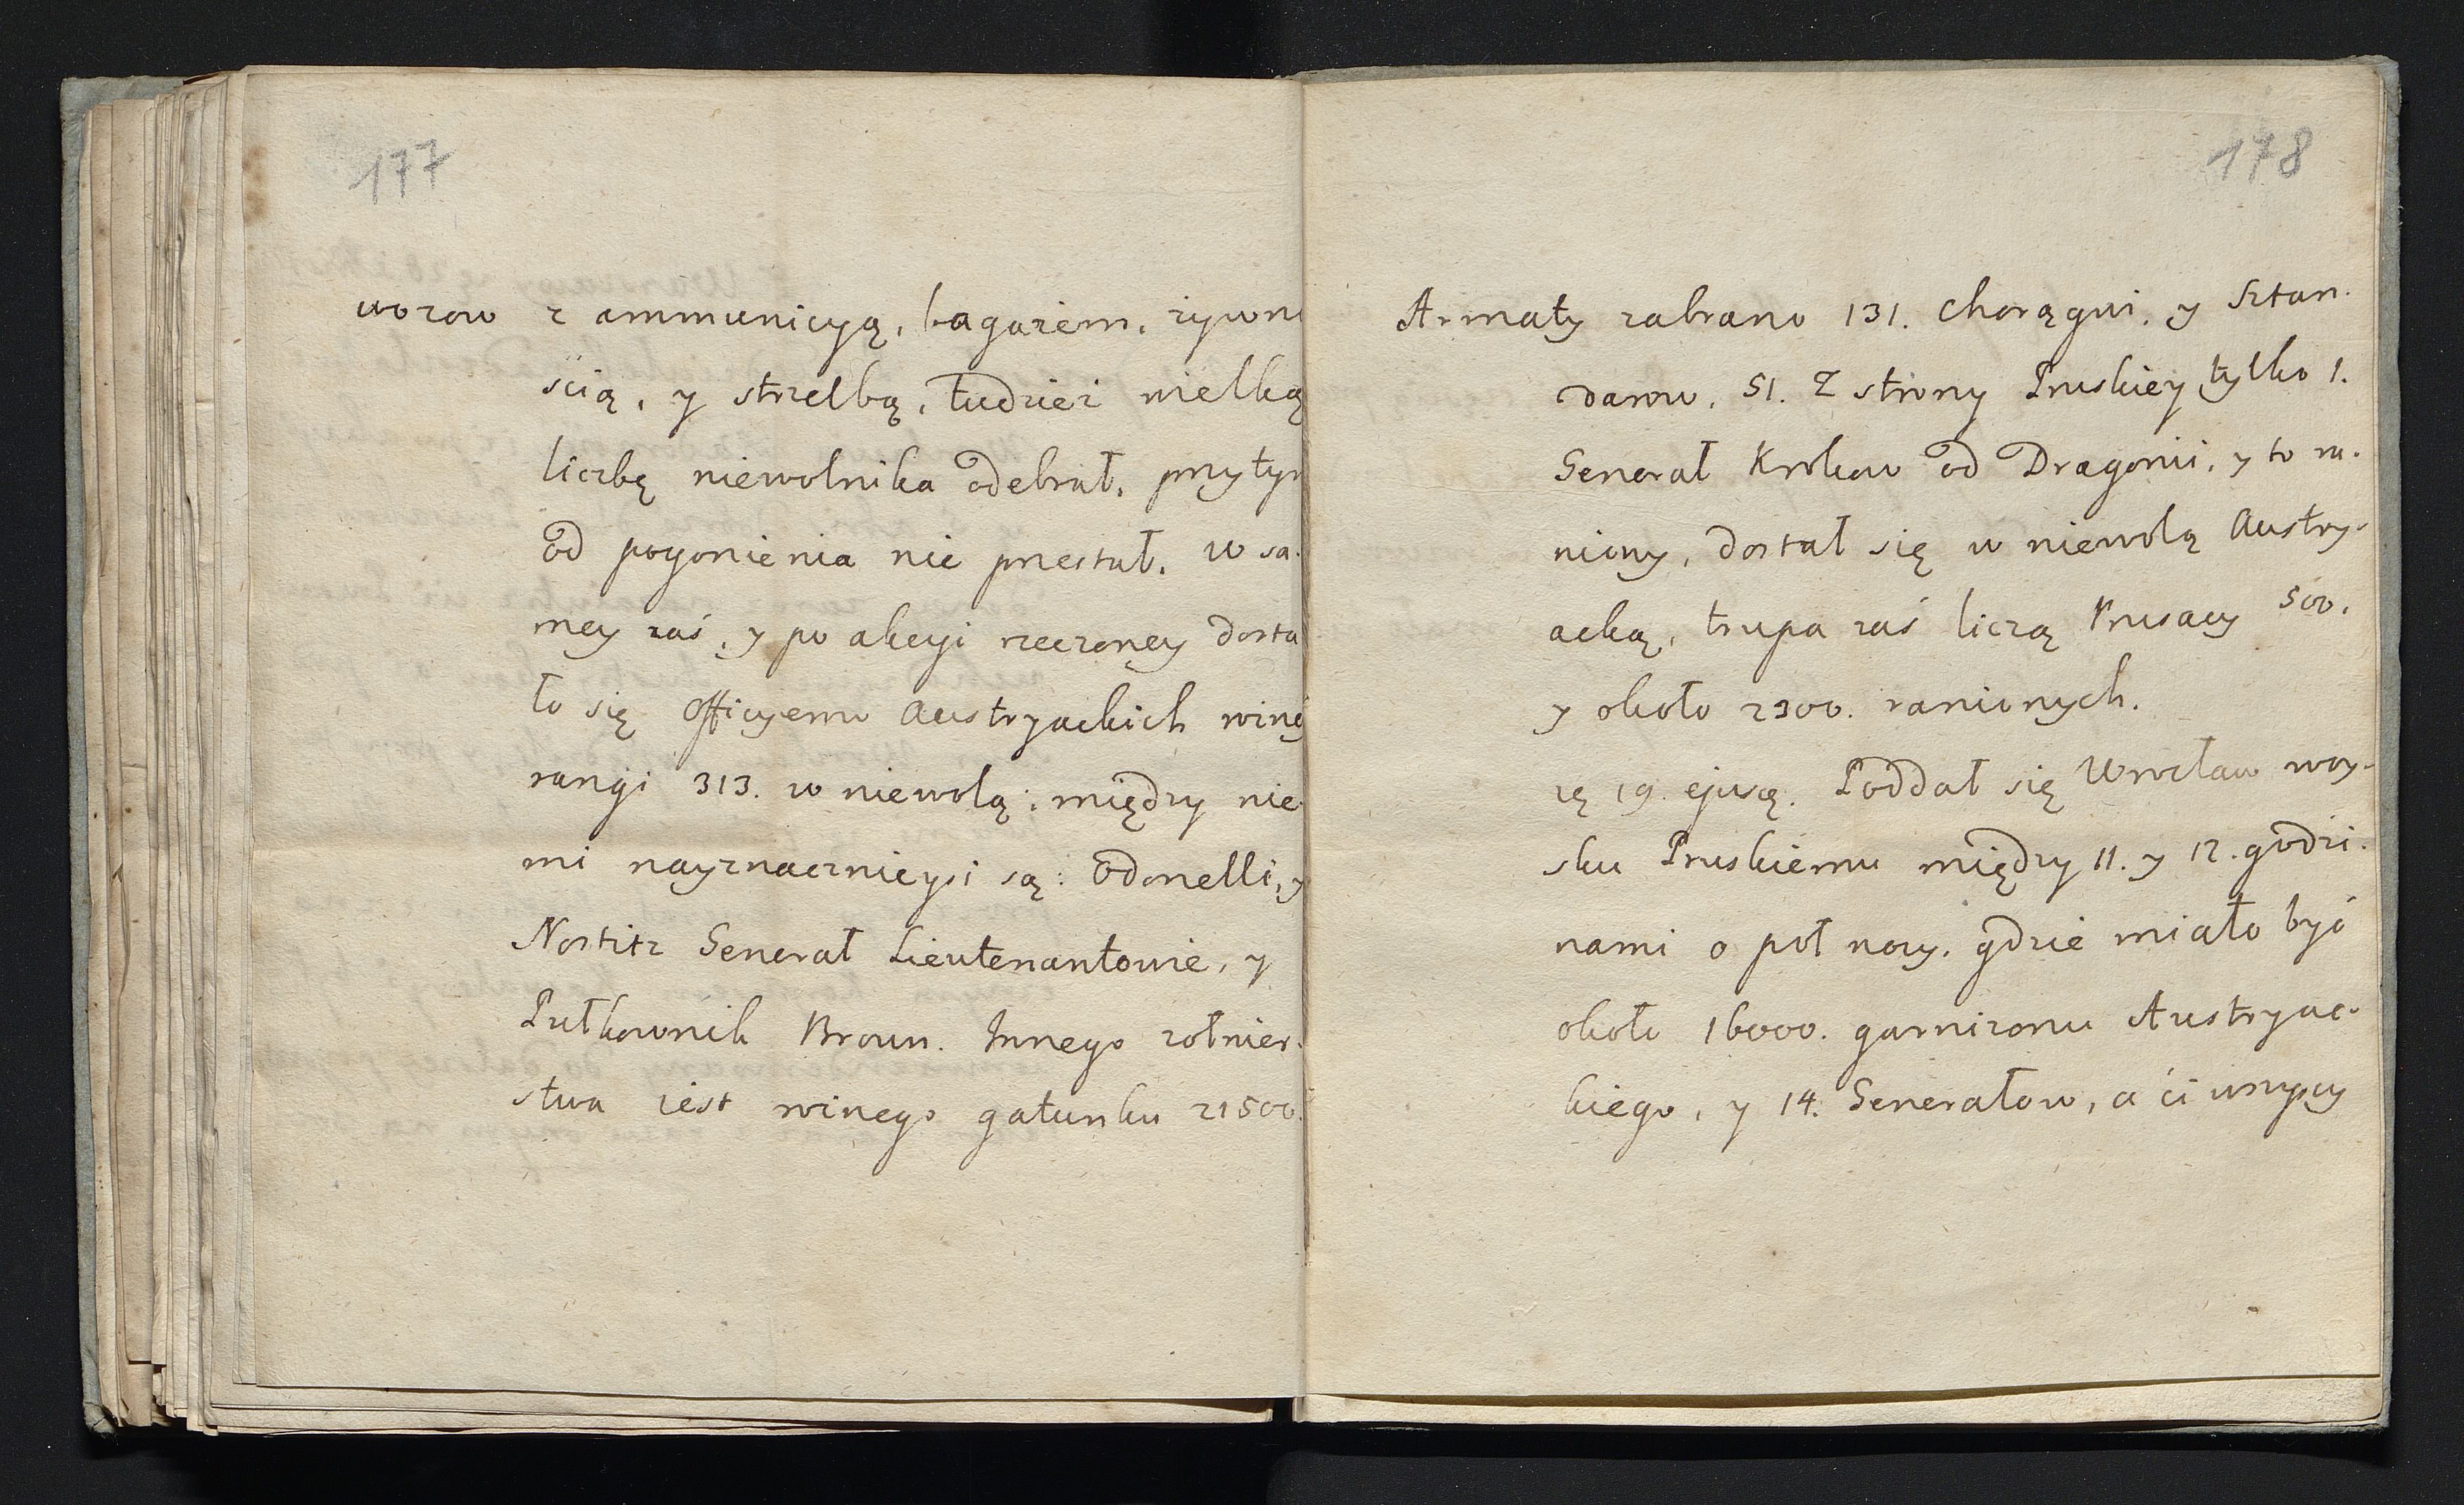 177
wozow z ammunicyą, bagażem, żywno
ścią, y strzelbą, tudzież wielką
liczbę niewolnika odebrał, przytym
od pogonienia nie przestał. w sa.
mey zaś, y po akcyi rzeczoney dosta
ło się Officyerow Austryackich rożney
rangi 313. w niewolą; między nie
mi nayznacznieysi są: Odonelli, y
Nostitz Generał Lieutenantowie, y
Pułkownik Broun. Innego żołnier.
stwa iest rożnego gatunku 21500.
178
Armaty zabrano 131. Chorągwi, y Sztan.
darow. 51. Z strony Pruskiey tylko 1.
Generał Krokow od Dragonii, y to ra.
niony, dostał się w niewolą Austry-
acką, trupa zaś liczą Prusacy 500.
y około 2300. ranionych.
19. Poddał się Wrocław woy-
sku Pruskiemu między 11. y 12. godzi.
nami o poł nocy. gdzie miało być
około 16000. garnizonu Austryac-
kiego, y 14. Generałow, a ći wszyscy